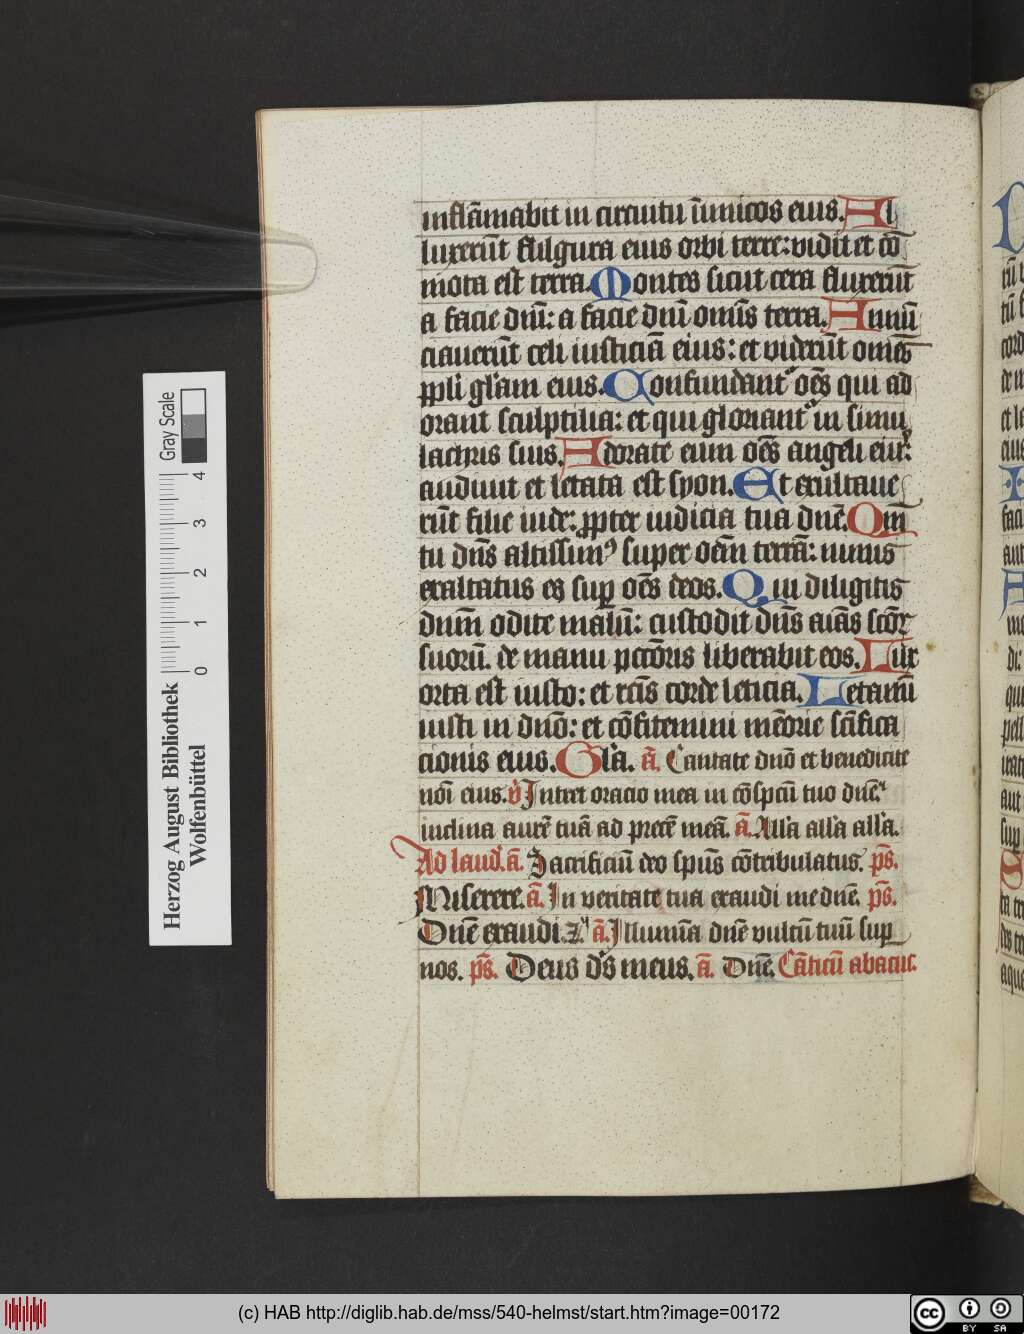 inflāmabit in circuitu īimicos eius. Al
luxerūt fulgura eius orbi terre: vidit et cō
mota est terra. Montes sicut cera fluxerūt
a facie dn̄i: a facie dn̄i om̄is terra. Annū
ciauerūt celi iusticiā eius: et viderūt omēs
ppl̄i gl̄am eius. Confundant᷑ oēs qui ad
orant sculptilia: et qui gloriant᷑ in simu
lachris suis. Adorate eum oēs angeli eiꝰ:
audiuit et letata est syon. Et exultaue
rūt filie iude: ꝓpter iudicia tua dn̄e. Qm̄
tu dn̄s altissimꝰ super oēm terrā: nimis
exaltatus es suꝑ oēs deos. Qui diligitis
dn̄m odite malū: custodit dn̄s aīas scōꝝ
suorū. de manu pctōris liberabit eos. Lux
orta est iusto: et rc̄is corde leticia. Letamī
iusti in dn̄o: et cōfitemini mēorie sc̄ifica
cionis eius. Gl̄a. ā. Cantate dn̄o et benedicite
noī eius. v̄ Intret oracio mea in cōspcū tuo dn̄e.
inclina aurē tuā ad precē meā. ā. All̄a all̄a all̄a.
Ad laud̄. ā. Sacrificiū deo sp̄us cōtribulatus. ps̄.
Miserere. ā. In veritate tua exaudi me dn̄e. ps̄.
Dn̄e exaudi. ij. ā. Illumīa dn̄e vultū tuū suꝑ
nos. ps̄. Deus ds̄ meus. ā. Dn̄e. Cāticū abacuc.
Herzog August Bibliothek
Wolfenbüttel
0 1 2 3 4
Gray Scale
(c) HAB http://diglib.hab.de/mss/540-helmst/start.htm?image=00172
cc BY SA